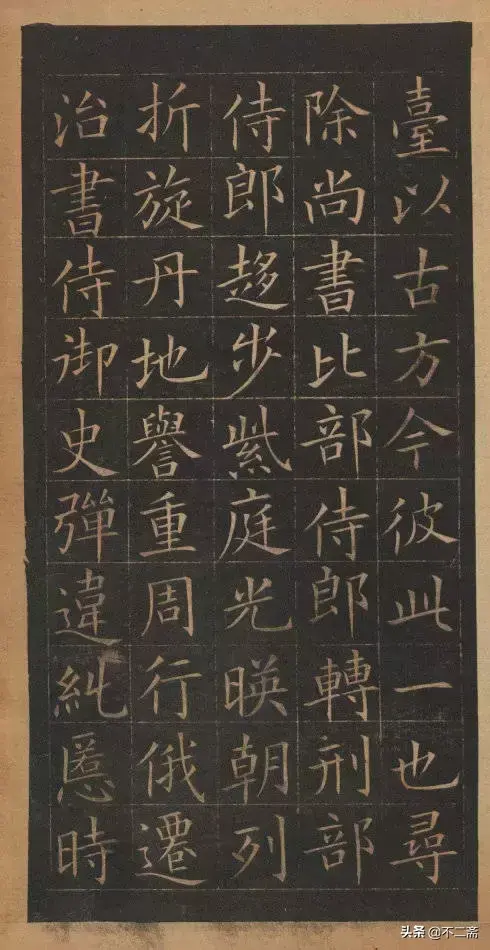 臺以古方今彼此一也尋
除尚書比部侍郎轉刑部
侍郎趍步紫庭光暎朝列
折旋丹地譽重周行俄遷
治書侍御史彈違糺慝時
头条 @不二斋